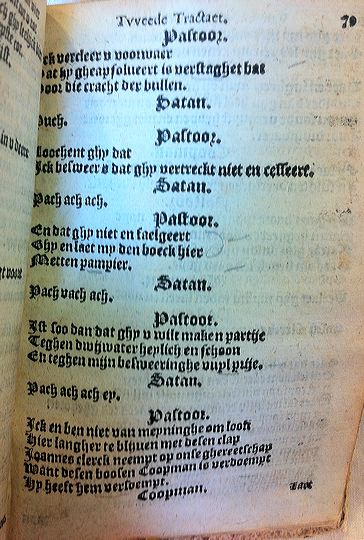 Tvveede Tractaet. 70
Pastoor.
Ick vercleer u voorwaer
Dat hy gheapsolueert is verstaghet dat
Door die cracht der bullen.
Satan.
Puch.
Pastoor.
Loochent ghy dat
Ick besweer u dat ghy vertreckt niet en cesseert.
Satan.
Pach ach ach.
Pastoor.
En dat ghy niet en faelgeert
Ghy en laet my den boeck hier
Metten pampier.
Satan.
Pach vach ach.
Pastoor.
Ist soo dan dat ghy u wilt maken partije
Teghen dwijwater heylich en schoon
En teghen mijn besweeringhe vuyl prije.
Satan.
Pach ach ach ey.
Pastoor.
Ick en ben niet van meyninghe om looti
Hier langher te blijuen met desen clap
Joannes clerck neempt op onse ghereetschap
Want desen boosen Coopman is verdoempt
Hy heeft hem versoempt.
Coopman.